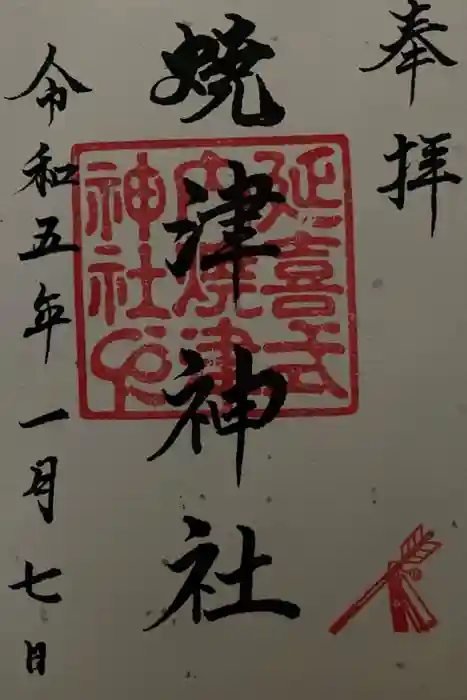 奉拝
焼津神社
延喜式
内焼津
神社之印
令和五年一月七日